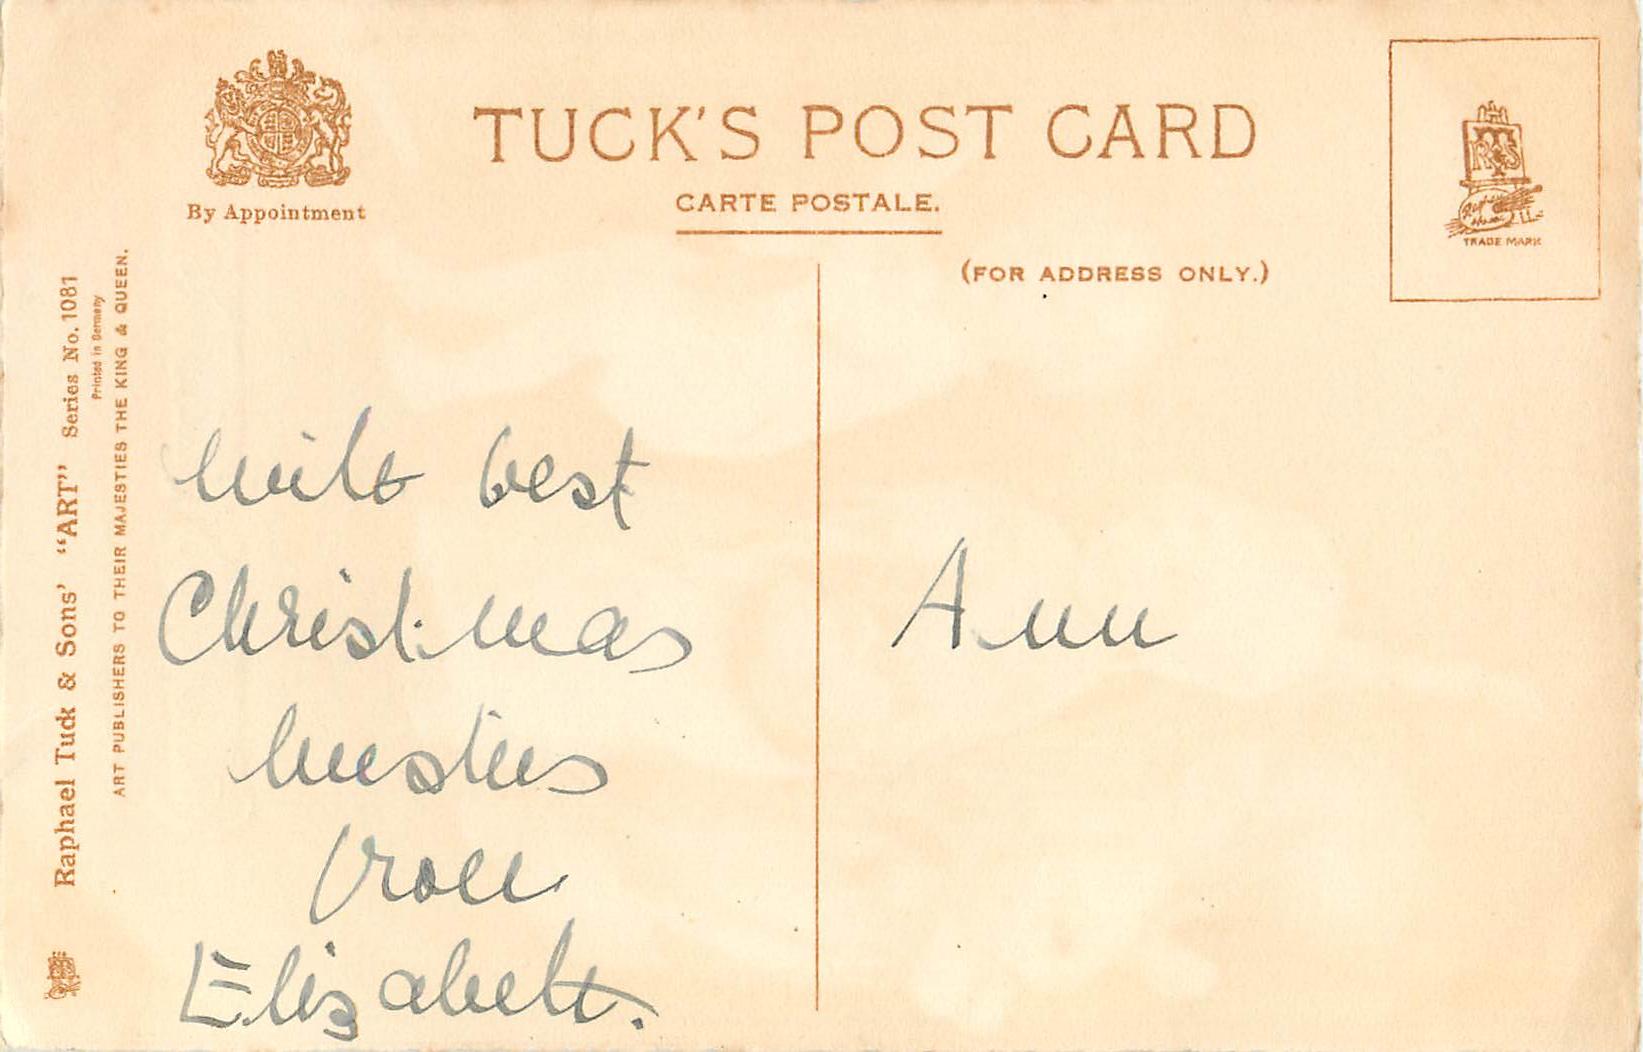 TUCK'S POST CARD
CARTE POSTALE.
By Appointment
(FOR ADDRESS ONLY.)
TRADE MARK
Raphael Tuck & Sons' "ART" Series No. 1081
Printed in Germany
ART PUBLISHERS TO THEIR MAJESTIES THE KING & QUEEN.
with best
Christmas
wishes
from
Elizabeth.
Ann